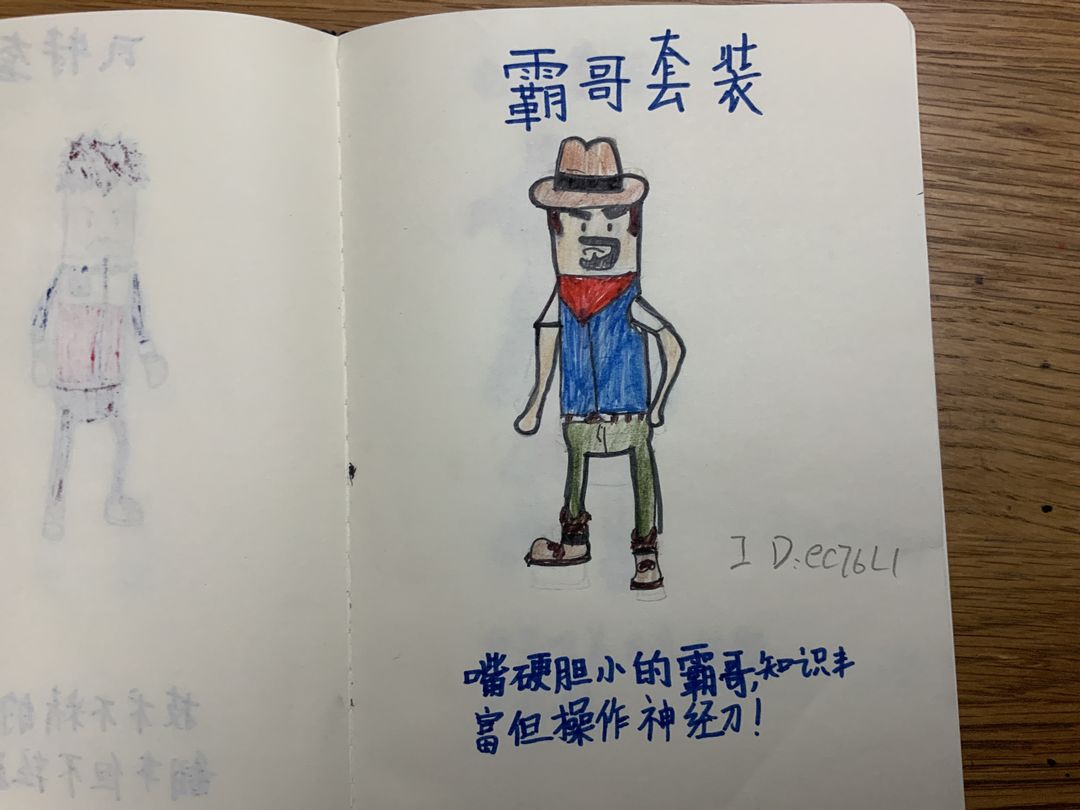 霸哥套装
ID:ec76L1
嘴硬胆小的霸哥,知识丰
富但操作神经刀!